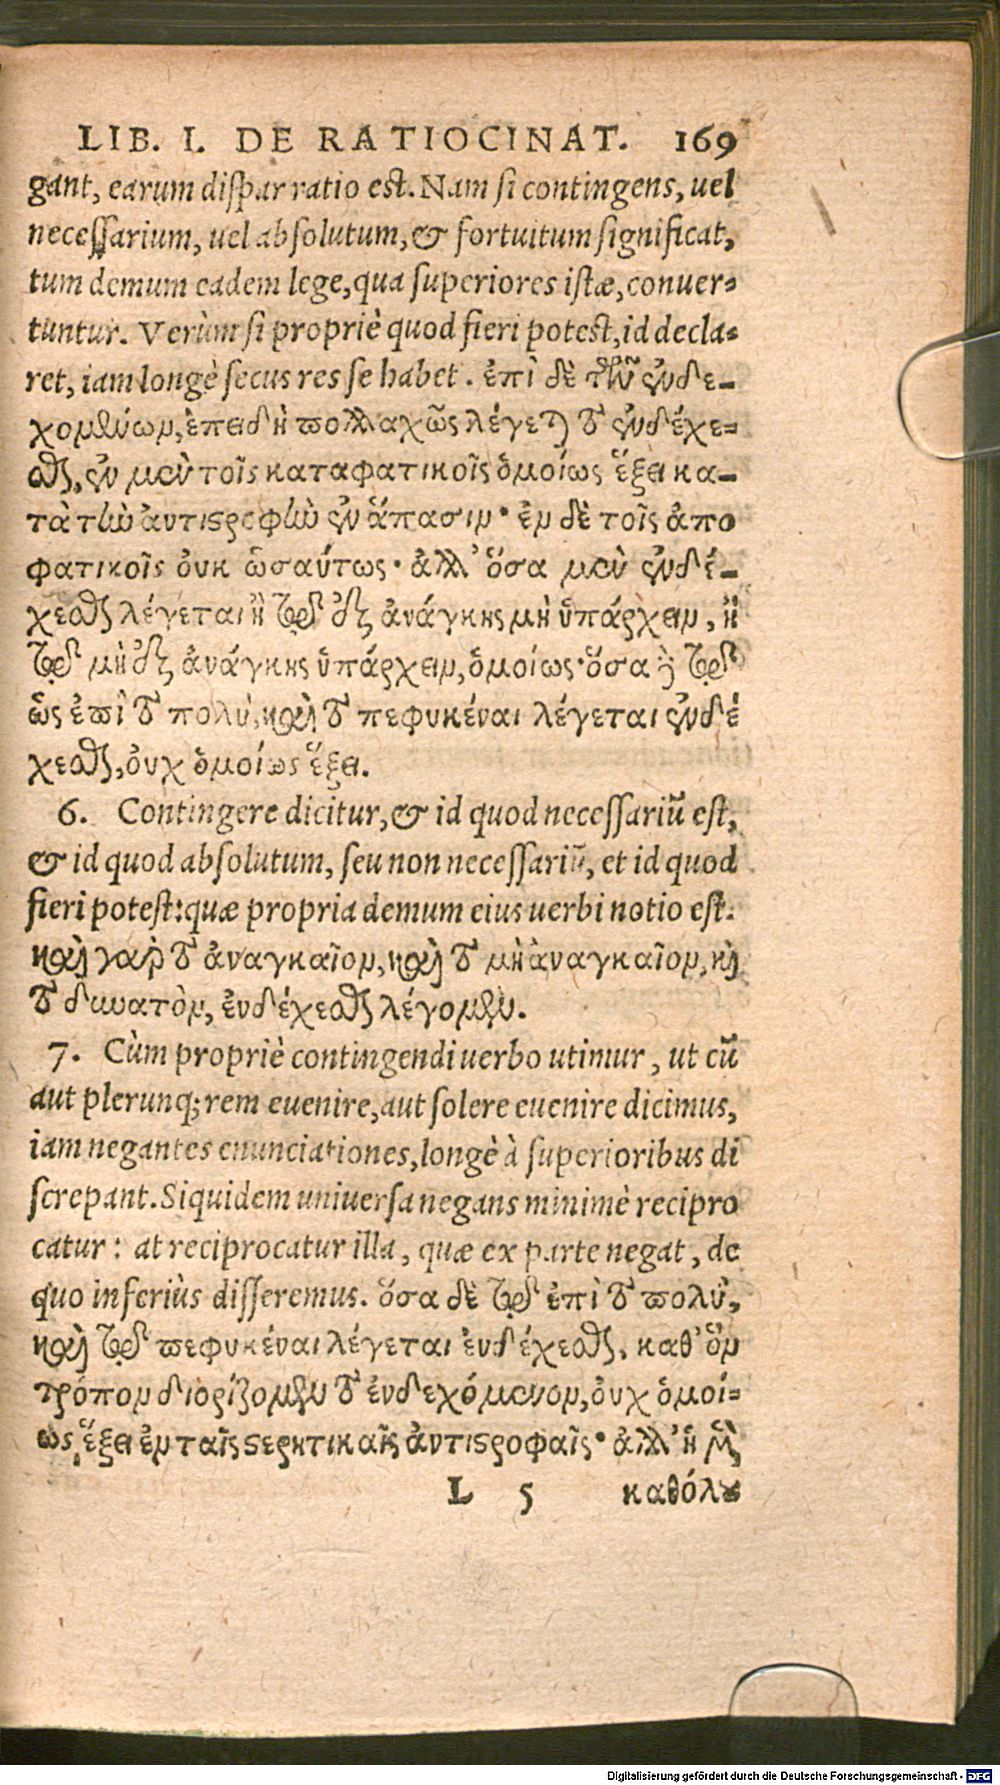 LIB. I. DE RATIOCINAT. 169
gant, earum dispar ratio est. Nam si contingens, uel
necessarium, uel absolutum, & fortuitum significat,
tum demum eadem lege, qua superiores istæ, conuer-
tuntur. Verùm si propriè quod fieri potest, id decla-
ret, iam longè secus res se habet. ἐπὶ δὲ τῶν ἐνδε-
χομένων, ἐπειδὴ πολλαχῶς λέγεται τὸ ἐνδέχε-
σθαι, ἐν μὲν τοῖς καταφατικοῖς ὁμοίως ἕξει κα-
τὰ τὴν ἀντιστροφὴν ἐν ἅπασιν· ἐν δὲ τοῖς ἀπο
φατικοῖς οὐκ ὡσαύτως· ἀλλ' ὅσα μὲν ἐνδέ-
χεσθαι λέγεται ἢ τῷ ἐξ ἀνάγκης μὴ ὑπάρχειν, ἢ
τῷ μὴ ἐξ ἀνάγκης ὑπάρχειν, ὁμοίως· ὅσα δὲ τῷ
ὡς ἐπὶ τὸ πολὺ, καὶ τὸ πεφυκέναι λέγεται ἐνδέ
χεσθαι, οὐχ ὁμοίως ἕξει.
6. Contingere dicitur, & id quod necessariũ est,
& id quod absolutum, seu non necessariũ, et id quod
fieri potest: quæ propria demum eius uerbi notio est.
καὶ γὰρ τὸ ἀναγκαῖον, καὶ τὸ μὴ ἀναγκαῖον, καὶ
τὸ δυνατὸν, ἐνδέχεσθαι λέγομεν.
7. Cùm propriè contingendi uerbo utimur, ut cũ
aut plerunq; rem euenire, aut solere euenire dicimus,
iam negantes enunciationes, longè à superioribus di
screpant. Siquidem uniuersa negans minimè recipro
catur: at reciprocatur illa, quæ ex parte negat, de
quo inferiùs disseremus. ὅσα δὲ τῷ ἐπὶ τὸ πολὺ,
καὶ τῷ πεφυκέναι λέγεται ἐνδέχεσθαι, καθ' ὃν
τρόπον διορίζομεν τὸ ἐνδεχόμενον, οὐχ ὁμοί-
ως ἕξει ἐν ταῖς στερητικαῖς ἀντιστροφαῖς· ἀλλ' ἡ μὲν
L 5 καθόλου
Digitalisierung gefördert durch die Deutsche Forschungsgemeinschaft - DFG